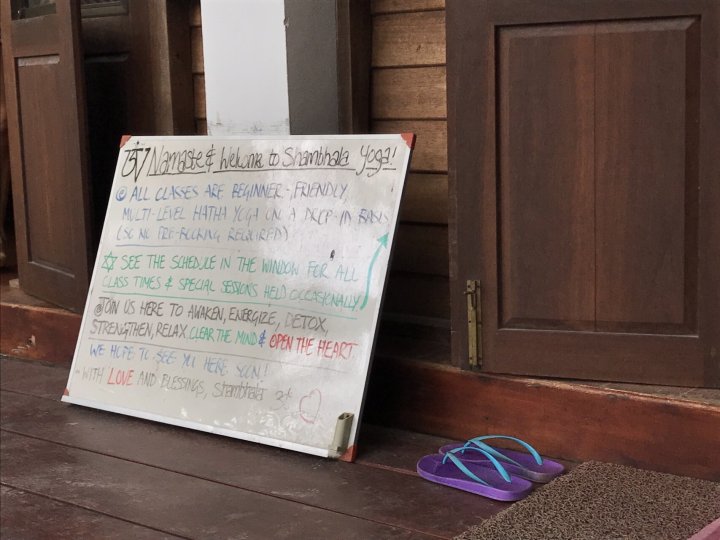 Namaste & Welcome to Shambhala Yoga!
ALL CLASSES ARE BEGINNER-FRIENDLY,
MULTI-LEVEL HATHA YOGA ON A DROP-IN BASIS
(SO NO PRE-BOOKING REQUIRED)
SEE THE SCHEDULE IN THE WINDOW FOR ALL
CLASS TIMES & SPECIAL SESSIONS HELD OCCASIONALLY
JOIN US HERE TO AWAKEN, ENERGIZE, DETOX,
STRENGTHEN, RELAX, CLEAR THE MIND & OPEN THE HEART.
WE HOPE TO SEE YOU HERE SOON!
WITH LOVE AND BLESSINGS, Shambhala